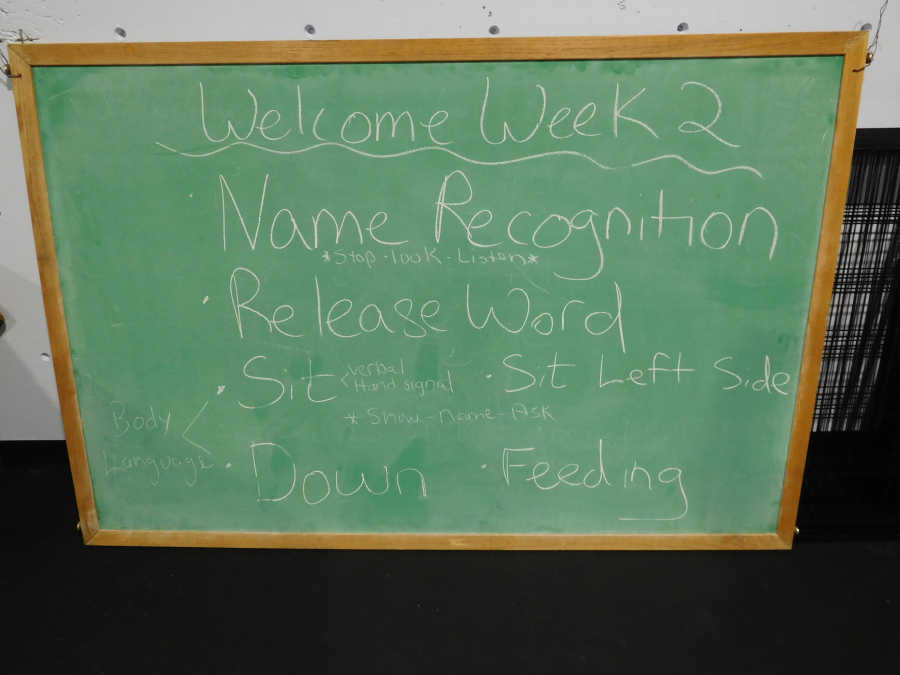 Welcome Week 2
· Name Recognition
*Stop · look · Listen*
· Release Word
· Sit < verbal
Hand signal
· Sit Left Side
* Show - Name - Ask
Body
Language
· Down · Feeding